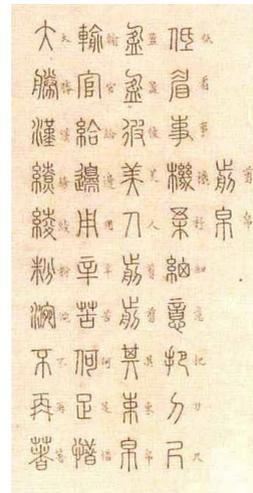 剪帛
低眉事機杼細意把刀尺
盈盈彼美人剪剪其束帛
輸官給邊用辛苦何足惜
大勝漢繚綾粉涴不再著